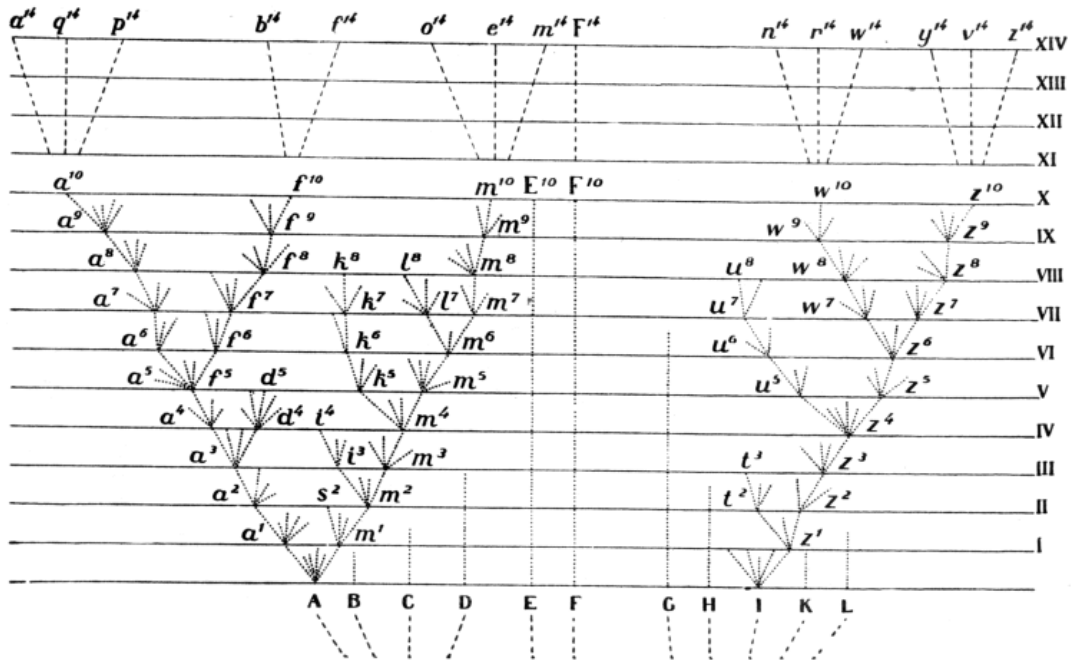 a¹⁴ q¹⁴ p¹⁴ b¹⁴ f¹⁴ o¹⁴ e¹⁴ m¹⁴ F¹⁴ n¹⁴ r¹⁴ w¹⁴ y¹⁴ v¹⁴ z¹⁴ XIV
XIII
XII
XI
a¹⁰ f¹⁰ m¹⁰ E¹⁰ F¹⁰ w¹⁰ z¹⁰ X
a⁹ f⁹ m⁹ w⁹ z⁹ IX
a⁸ f⁸ k⁸ l⁸ m⁸ u⁸ w⁸ z⁸ VIII
a⁷ f⁷ k⁷ l⁷ m⁷ u⁷ w⁷ z⁷ VII
a⁶ f⁶ k⁶ m⁶ u⁶ z⁶ VI
a⁵ f⁵ d⁵ k⁵ m⁵ u⁵ z⁵ V
a⁴ d⁴ i⁴ m⁴ z⁴ IV
a³ i³ m³ t³ z³ III
a² s² m² t² z² II
a¹ m¹ z¹ I
A B C D E F G H I K L